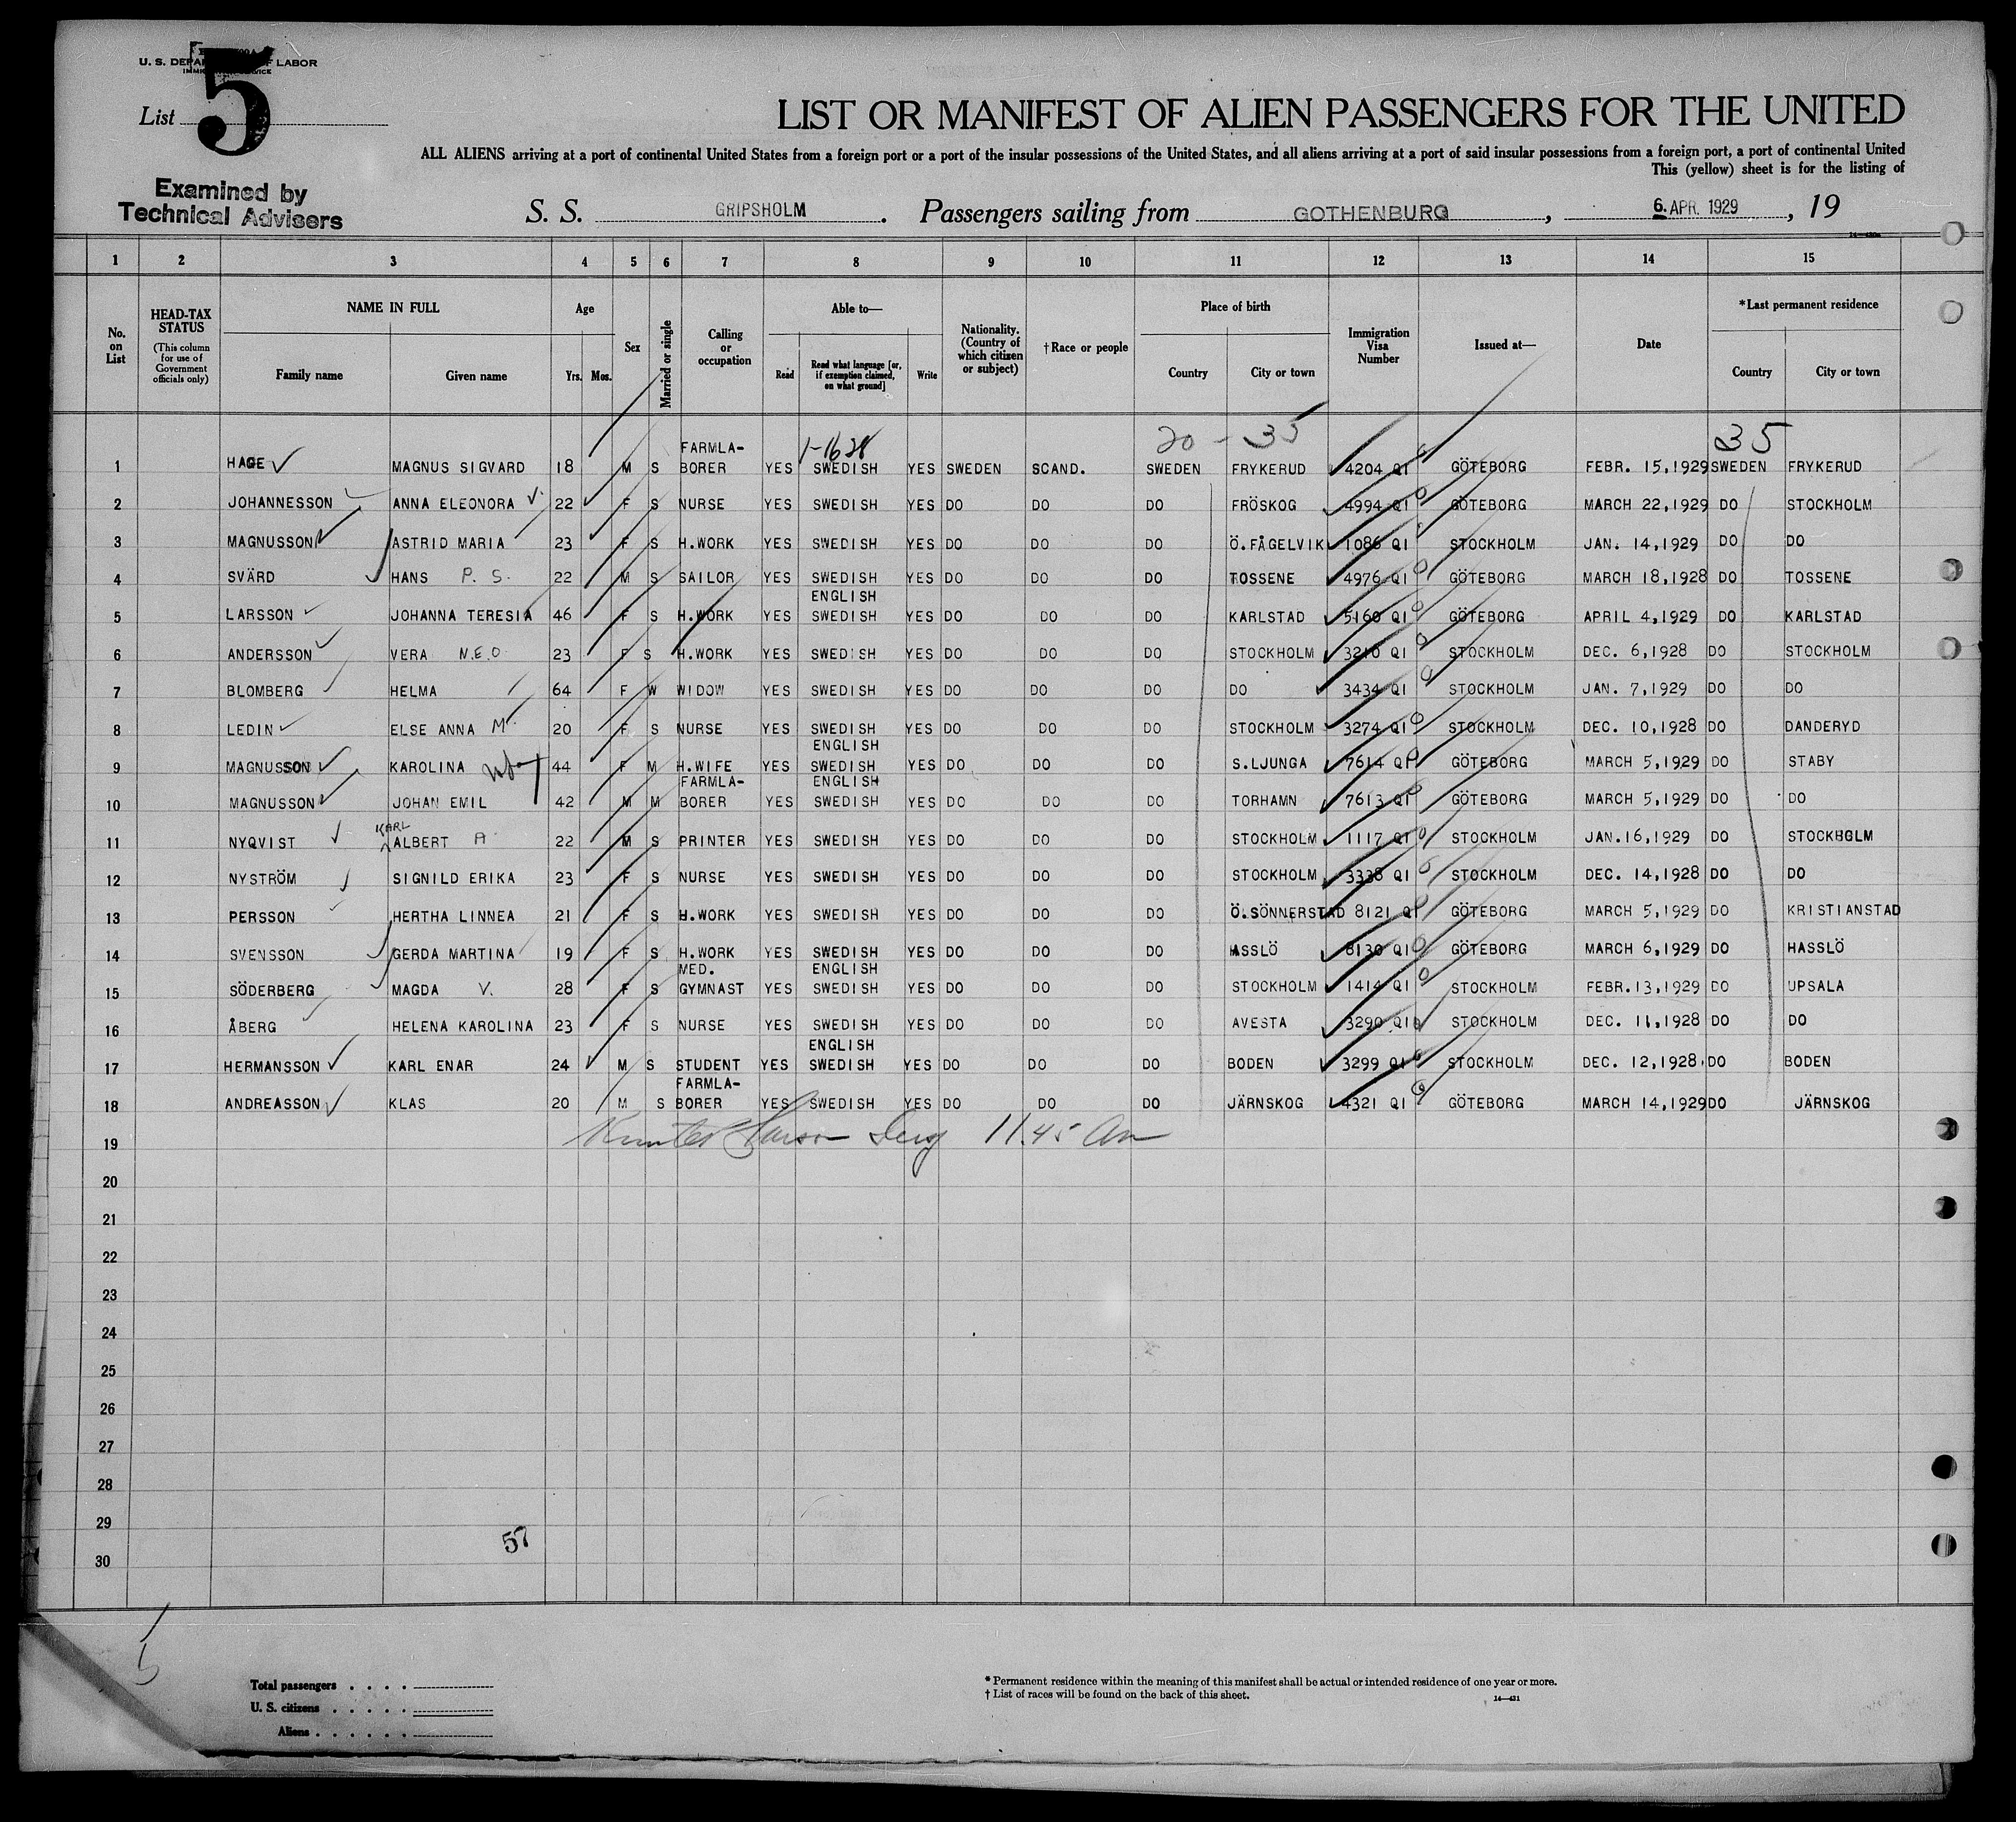 U. S. DEPARTMENT OF LABOR
IMMIGRATION SERVICE
List 5
LIST OR MANIFEST OF ALIEN PASSENGERS FOR THE UNITED
ALL ALIENS arriving at a port of continental United States from a foreign port or a port of the insular possessions of the United States, and all aliens arriving at a port of said insular possessions from a foreign port, a port of continental United
This (yellow) sheet is for the listing of
Examined by
Technical Advisers
S. S. GRIPSHOLM. Passengers sailing from GOTHENBURG, 6. APR. 1929, 19
1 2 3 4 5 6 7 8 9 10 11 12 13 14 15
No. on List
HEAD-TAX STATUS (This column for use of Government officials only)
NAME IN FULL
Family name Given name
Age
Yrs. Mos.
Sex
Married or single
Calling or occupation
Able to—
Read Read what language [or, if exemption claimed, on what ground] Write
Nationality. (Country of which citizen or subject)
†Race or people
Place of birth
Country City or town
Immigration Visa Number
Issued at—
Date
*Last permanent residence
Country City or town
20 - 35 35
1 HAGE MAGNUS SIGVARD 18 M S FARMLA-BORER YES SWEDISH YES SWEDEN SCAND. SWEDEN FRYKERUD 4204 QI GÖTEBORG FEBR. 15,1929 SWEDEN FRYKERUD
2 JOHANNESSON ANNA ELEONORA V. 22 F S NURSE YES SWEDISH YES DO DO DO FRÖSKOG 4994 QI GÖTEBORG MARCH 22,1929 DO STOCKHOLM
3 MAGNUSSON ASTRID MARIA 23 F S H.WORK YES SWEDISH YES DO DO DO Ö.FÅGELVIK 1086 QI STOCKHOLM JAN. 14,1929 DO DO
4 SVÄRD HANS P. S. 22 M S SAILOR YES SWEDISH YES DO DO DO TOSSENE 4976 QI GÖTEBORG MARCH 18,1928 DO TOSSENE
5 LARSSON JOHANNA TERESIA 46 F S H.WORK YES ENGLISH SWEDISH YES DO DO DO KARLSTAD 5160 QI GÖTEBORG APRIL 4,1929 DO KARLSTAD
6 ANDERSSON VERA N.E.O. 23 F S H.WORK YES SWEDISH YES DO DO DO STOCKHOLM 3210 QI STOCKHOLM DEC. 6,1928 DO STOCKHOLM
7 BLOMBERG HELMA 64 F W WIDOW YES SWEDISH YES DO DO DO DO 3434 QI STOCKHOLM JAN. 7,1929 DO DO
8 LEDIN ELSE ANNA M. 20 F S NURSE YES SWEDISH YES DO DO DO STOCKHOLM 3274 QI STOCKHOLM DEC. 10,1928 DO DANDERYD
9 MAGNUSSON KAROLINA 44 F M H.WIFE YES ENGLISH SWEDISH YES DO DO DO S.LJUNGA 7614 QI GÖTEBORG MARCH 5,1929 DO STABY
10 MAGNUSSON JOHAN EMIL 42 M M FARMLA-BORER YES ENGLISH SWEDISH YES DO DO DO TORHAMN 7613 QI GÖTEBORG MARCH 5,1929 DO DO
11 NYQVIST KARL ALBERT A 22 M S PRINTER YES SWEDISH YES DO DO DO STOCKHOLM 1117 QI STOCKHOLM JAN.16,1929 DO STOCKHOLM
12 NYSTRÖM SIGNILD ERIKA 23 F S NURSE YES SWEDISH YES DO DO DO STOCKHOLM 3338 QI STOCKHOLM DEC. 14,1928 DO DO
13 PERSSON HERTHA LINNEA 21 F S H.WORK YES SWEDISH YES DO DO DO Ö.SÖNNERSTAD 8121 QI GÖTEBORG MARCH 5,1929 DO KRISTIANSTAD
14 SVENSSON GERDA MARTINA 19 F S H.WORK YES SWEDISH YES DO DO DO ASSLÖ 8130 QI GÖTEBORG MARCH 6,1929 DO HASSLÖ
15 SÖDERBERG MAGDA V. 28 F S MED. GYMNAST YES ENGLISH SWEDISH YES DO DO DO STOCKHOLM 1414 QI STOCKHOLM FEBR.13,1929 DO UPSALA
16 ÅBERG HELENA KAROLINA 23 F S NURSE YES SWEDISH YES DO DO DO AVESTA 3290 QI STOCKHOLM DEC. 11,1928 DO DO
17 HERMANSSON KARL ENAR 24 M S STUDENT YES ENGLISH SWEDISH YES DO DO DO BODEN 3299 QI STOCKHOLM DEC. 12,1928 DO BODEN
18 ANDREASSON KLAS 20 M S FARMLA-BORER YES SWEDISH YES DO DO DO JÄRNSKOG 4321 QI GÖTEBORG MARCH 14,1929 DO JÄRNSKOG
19 11.45 Am
20
21
22
23
24
25
26
27
28
29
57
30
5
Total passengers
U. S. citizens
Aliens
* Permanent residence within the meaning of this manifest shall be actual or intended residence of one year or more.
† List of races will be found on the back of this sheet.
14—431